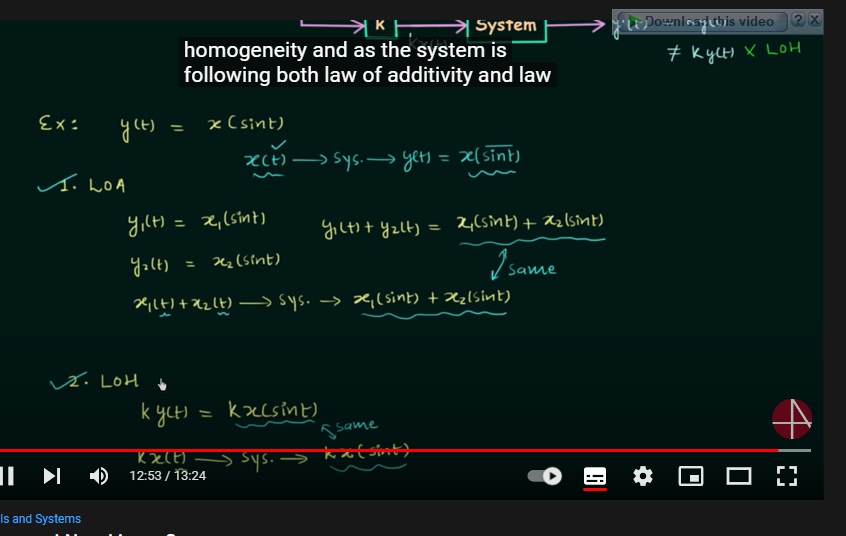 K System Download this video ? X
≠ Ky(t) X LOH
homogeneity and as the system is
following both law of additivity and law
Ex: y(t) = x(sint)
x(t) → sys. → y(t) = x(sint)
1. LOA
y₁(t) = x₁(sint) y₁(t) + y₂(t) = x₁(sint) + x₂(sint)
y₂(t) = x₂(sint) same
x₁(t) + x₂(t) → sys. → x₁(sint) + x₂(sint)
2. LOH
k y(t) = kx(sint)
same
kx(t) → sys. → kx(sint)
12:53 / 13:24
ls and Systems